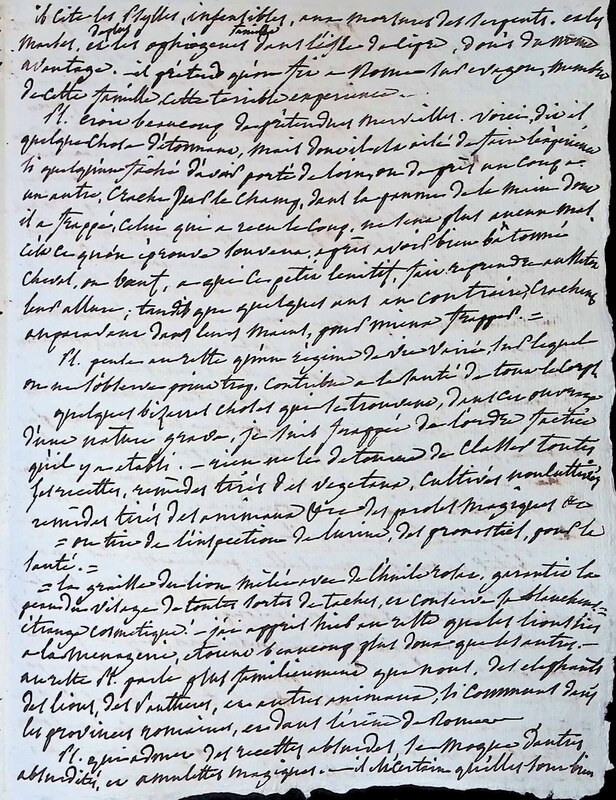 il cite les Psylles, insensibles, aux morsures des serpents. et les
Marses, et les ophiogenes dans l'isle de Cipre, doués du même
avantage. — il prétend qu'on fit a Rome sur evagon, membre
de cette famille cette terrible experience. —
Pl. croit beaucoup de prétendues merveilles. voici, dit il
quelque chose d'étonnant, mais dont il est aisé de faire l'expérience
si quelqu'un fâché d'avoir porté de loin, ou de près un coup a
un autre, crache sur le champ, dans la paume de la main dont
il a frappé, celui qui a recu le coup, ne sent plus aucun mal.
c'est ce qu'on éprouve souvent, après avoir bien bâtonné
cheval, ou bœuf, a qui ce petit lenitif, fait reprendre
leur allure; tandis que quelques uns au contraire, crachent
auparavant dans leurs mains, pour mieux frapper. =
Pl. pense au reste qu'un régime de vie varié, sur lequel
on ne s'observe point trop, contribue a la santé de tout le corps
quelques bizarres choses qui se trouvent, dans cet ouvrage
d'une nature grave, je suis frappée de l'ordre factice
qu'il y a etabli. — rien ne le detourne de classer toutes
les recettes, remèdes tirés des vegetaux, cultivés
remèdes tirés des animaux &c des magiques &c
= on tire de l'inspection de l'urine, des pronostics, pour la
santé. =
= la graisse du lion mêlée avec de l'huile rosat, garantit la
peau du visage de toutes sortes de taches, et conserve sa blancheur =
étrange cosmetique! — j'ai appris hier au reste que les lions
a la menagerie, etoient beaucoup plus doux que les autres. —
au reste Pl. parle plus familierement que nous, des elephants
des lions, des Panthères, et autres animaux, si communs dans
les provinces romaines, et dans l'arène de Rome
Pl. qui a donné des recettes absurdes, se moque d'autres
absurdités, et amulettes magiques. — il est certain qu'elles sont bien